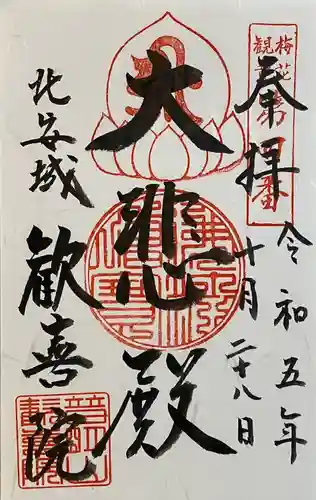 奉拝
令和五年
十月二十八日
大悲殿
北安城
歓喜院
梅花観音